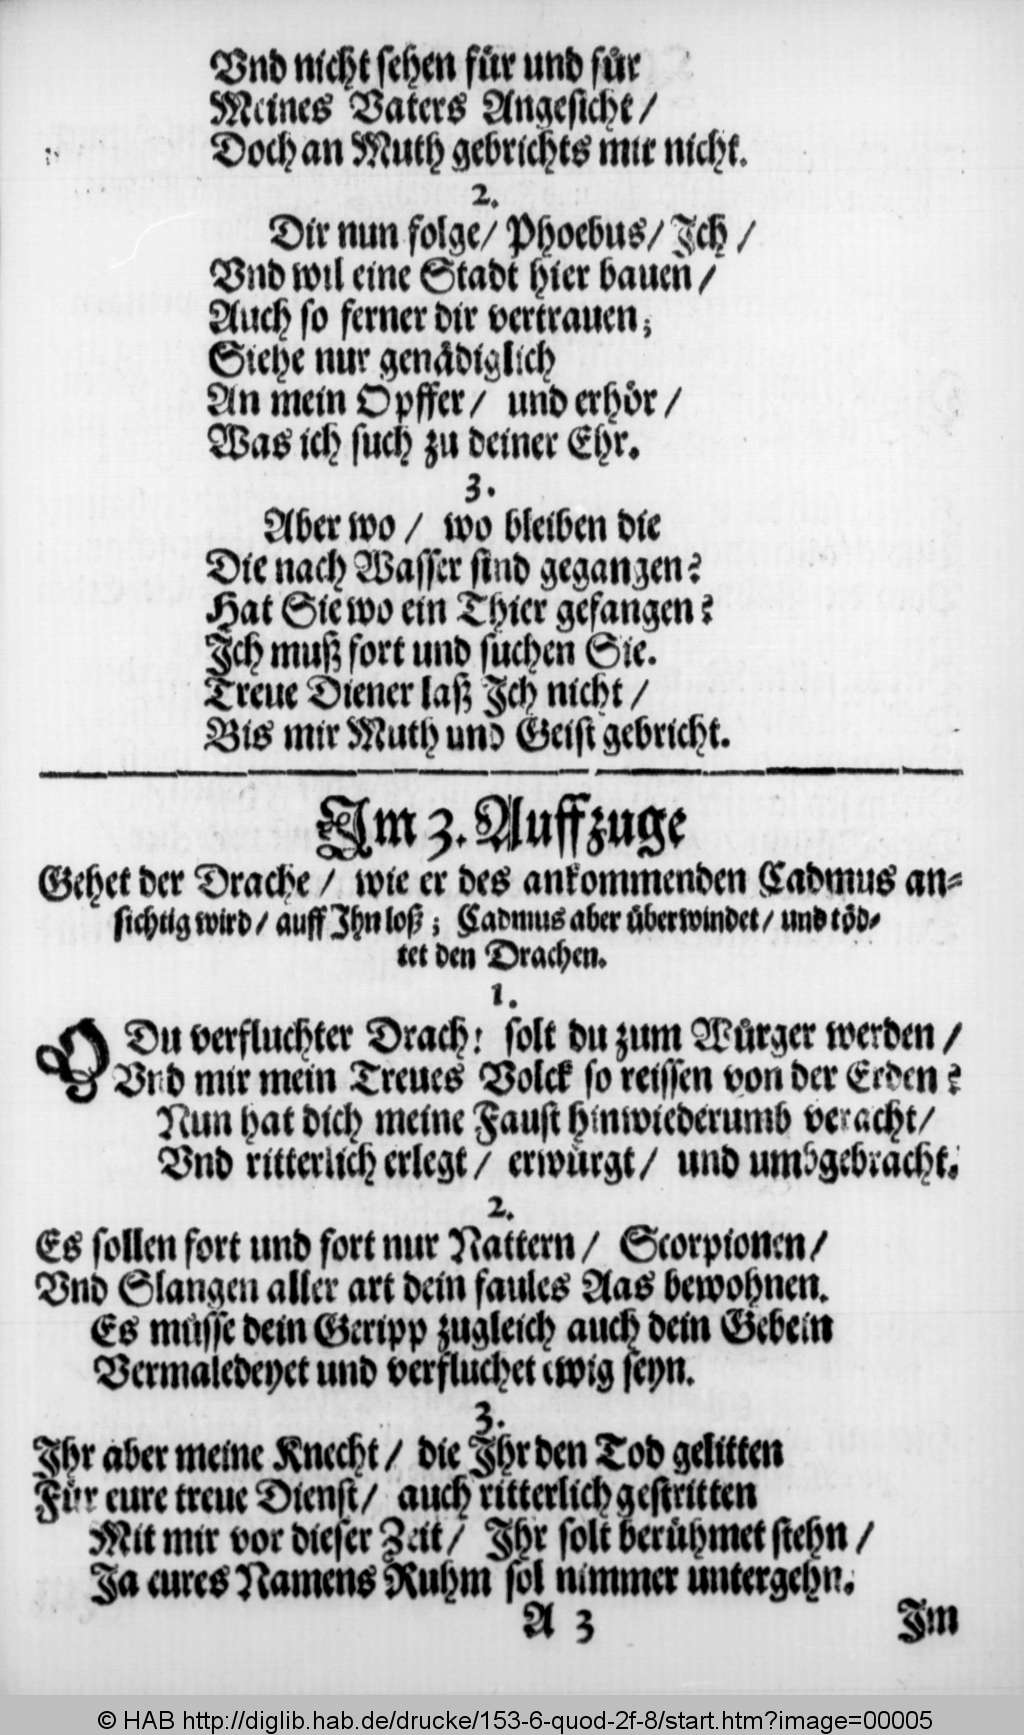 Vnd nicht sehen für und für
Meines Vaters Angesicht /
Doch an Muth gebrichts mir nicht.
2.
Dir nun folge / Phoebus / Ich /
Vnd wil eine Stadt hier bauen /
Auch so ferner dir vertrauen;
Siehe nur genådiglich
An mein Opffer / und erhör /
Was ich such zu deiner Ehr.
3.
Aber wo / wo bleiben die
Die nach Wasser sind gegangen?
Hat Sie wo ein Thier gefangen?
Ich muß fort und suchen Sie.
Treue Diener laß Ich nicht /
Bis mir Muth und Geist gebricht.
Im 3. Auffzuge
Gehet der Drache / wie er des ankommenden Cadmus an-
sichtig wird / auff Ihn loß; Cadmus aber überwindet / und töd-
tet den Drachen.
1.
O Du verfluchter Drach! solt du zum Würger werden /
Vnd mir mein Treues Volck so reissen von der Erden?
Nun hat dich meine Faust hinwiederumb veracht /
Vnd ritterlich erlegt / erwürgt / und umbgebracht.
2.
Es sollen fort und fort nur Nattern / Scorpionen /
Vnd Slangen aller art dein faules Aas bewohnen.
Es müsse dein Geripp zugleich auch dein Gebein
Vermaledeyet und verfluchet ewig seyn.
3.
Ihr aber meine Knecht / die Ihr den Tod gelitten
Für eure treue Dienst / auch ritterlich gestritten
Mit mir vor dieser Zeit / Ihr solt berühmet stehn /
Ja eures Namens Ruhm sol nimmer untergehn.
A 3 Im
© HAB http://diglib.hab.de/drucke/153-6-quod-2f-8/start.htm?image=00005